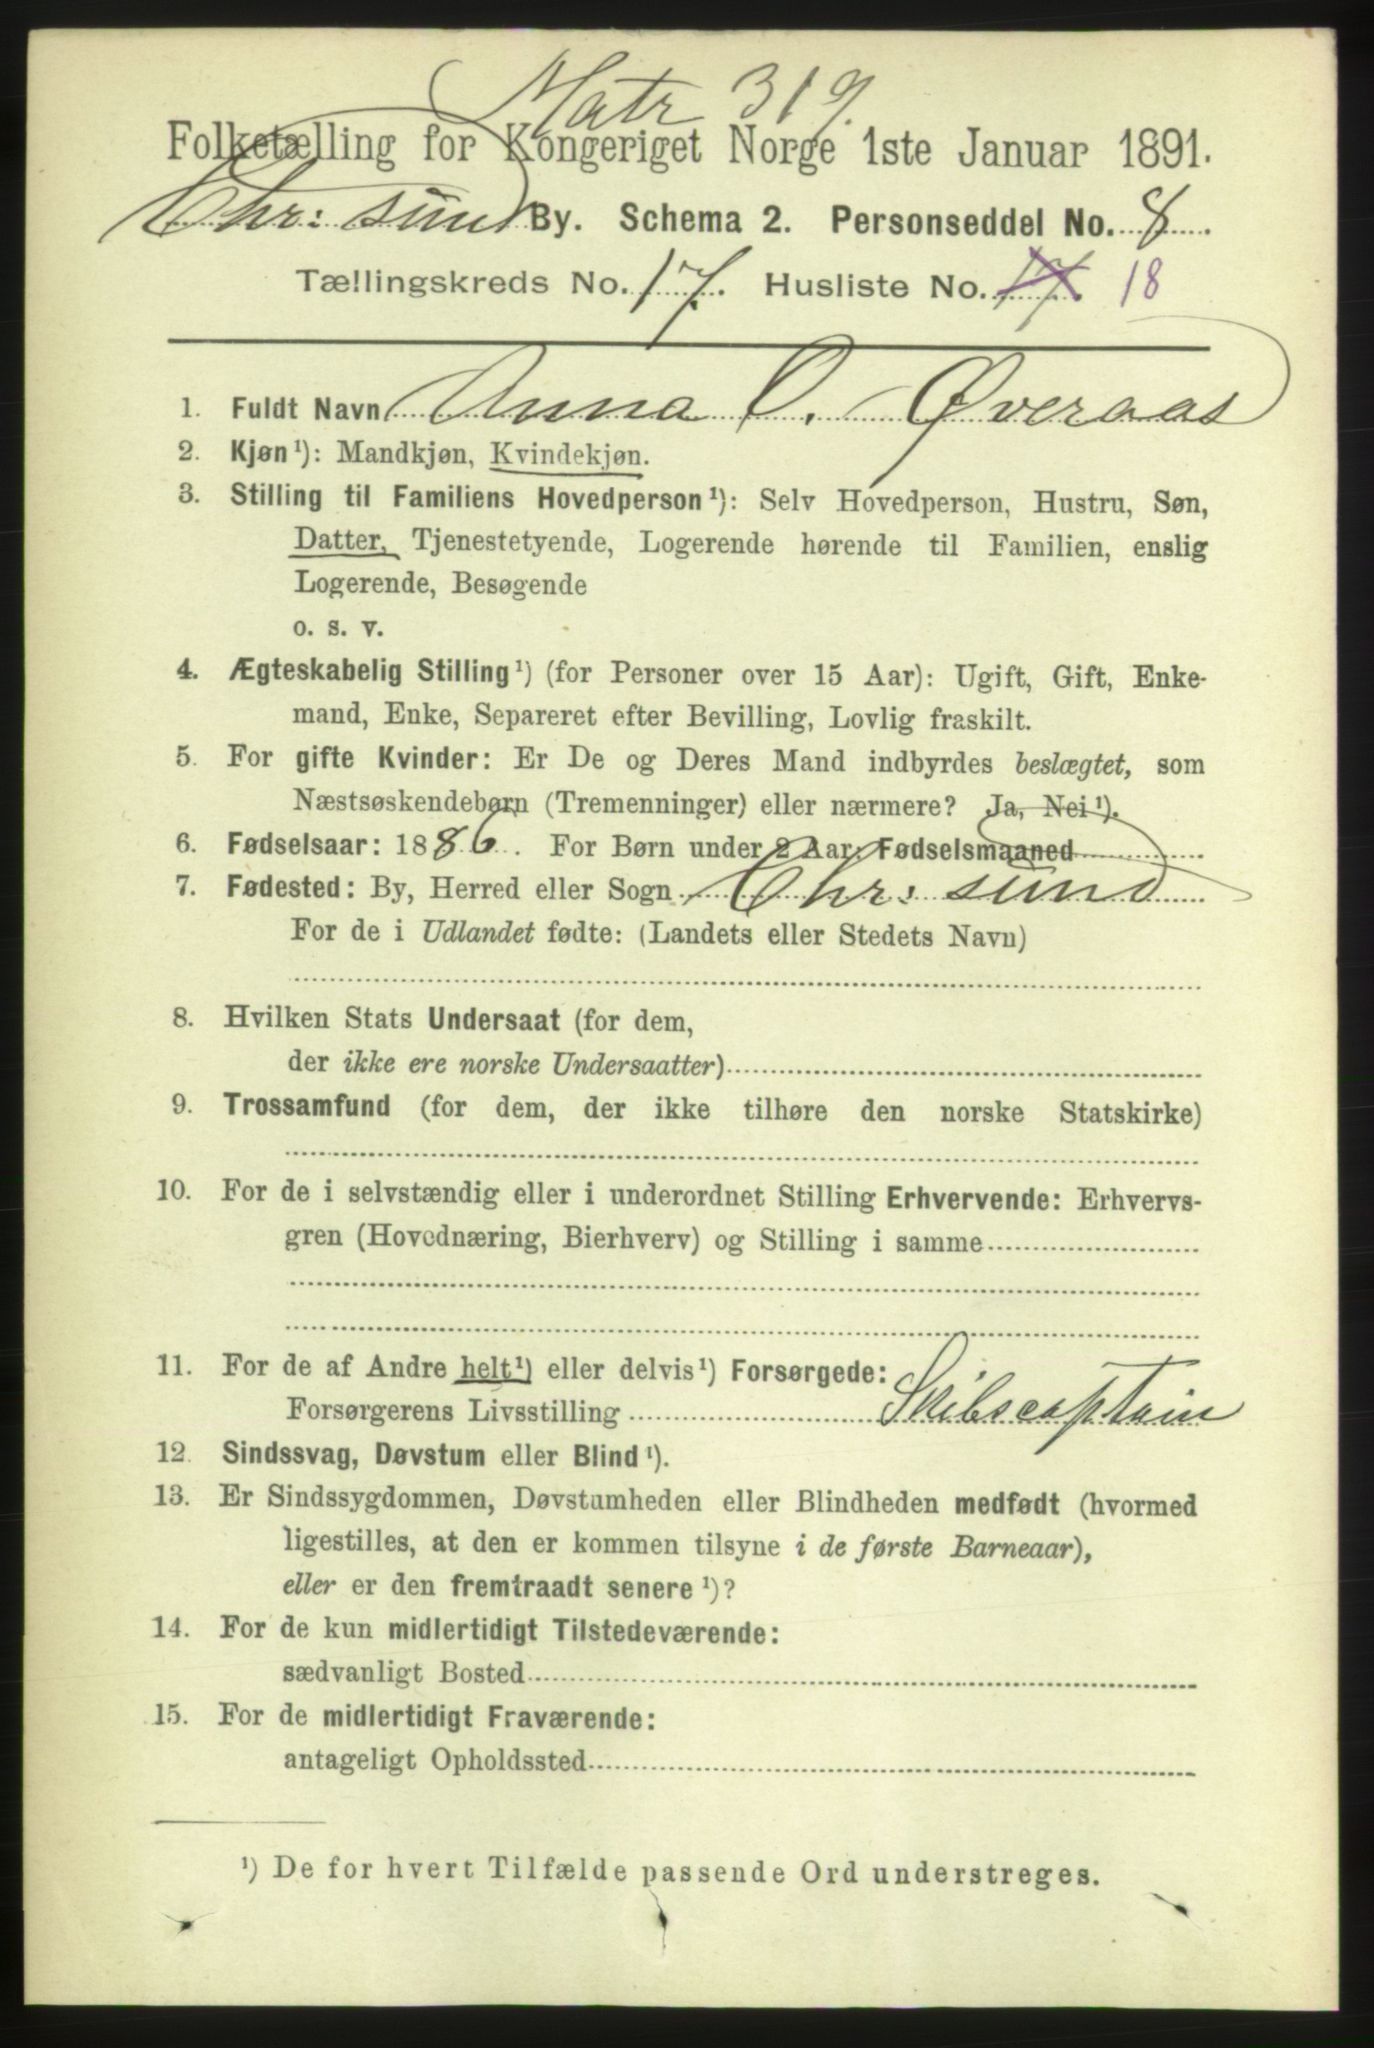 Matr 319.
Folketælling for Kongeriget Norge 1ste Januar 1891.
Chr: sund By. Schema 2. Personseddel No. 8
Tællingskreds No. 17. Husliste No. 17. 18
1. Fuldt Navn Anna O. Øveraas
2. Kjøn¹): Mandkjøn, Kvindekjøn.
3. Stilling til Familiens Hovedperson¹): Selv Hovedperson, Hustru, Søn,
Datter, Tjenestetyende, Logerende hørende til Familien, enslig
Logerende, Besøgende
o. s. v.
4. Ægteskabelig Stilling¹) (for Personer over 15 Aar): Ugift, Gift, Enke-
mand, Enke, Separeret efter Bevilling, Lovlig fraskilt.
5. For gifte Kvinder: Er De og Deres Mand indbyrdes beslægtet, som
Næstsøskendebørn (Tremenninger) eller nærmere? Ja, Nei¹).
6. Fødselsaar: 1886. For Børn under 2 Aar: Fødselsmaaned
7. Fødested: By, Herred eller Sogn Chr: sund
For de i Udlandet fødte: (Landets eller Stedets Navn)
8. Hvilken Stats Undersaat (for dem,
der ikke ere norske Undersaatter)
9. Trossamfund (for dem, der ikke tilhøre den norske Statskirke)
10. For de i selvstændig eller i underordnet Stilling Erhvervende: Erhvervs-
gren (Hovednæring, Bierhverv) og Stilling i samme
11. For de af Andre helt¹) eller delvis¹) Forsørgede:
Forsørgerens Livsstilling Skibscaptain
12. Sindssvag, Døvstum eller Blind¹).
13. Er Sindssygdommen, Døvstumheden eller Blindheden medfødt (hvormed
ligestilles, at den er kommen tilsyne i de første Barneaar),
eller er den fremtraadt senere¹)?
14. For de kun midlertidigt Tilstedeværende:
sædvanligt Bosted
15. For de midlertidigt Fraværende:
antageligt Opholdssted
¹) De for hvert Tilfælde passende Ord understreges.